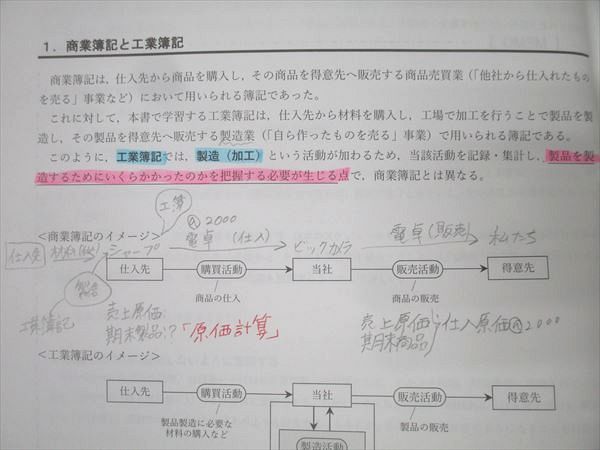 1. 商業簿記と工業簿記
商業簿記は，仕入先から商品を購入し，その商品を得意先へ販売する商品売買業（「他社から仕入れたもの
を売る」事業など）において用いられる簿記であった。
これに対して，本書で学習する工業簿記は，仕入先から材料を購入し，工場で加工を行うことで製品を製
造し，その製品を得意先へ販売する製造業（「自ら作ったものを売る」事業）で用いられる簿記である。
このように，工業簿記では，製造（加工）という活動が加わるため，当該活動を記録・集計し，製品を製
造するためにいくらかかったのかを把握する必要が生じる点で，商業簿記とは異なる。
工簿
@2000
<商業簿記のイメージ> 電卓（仕入） 電卓（販売）
仕入先 シャープ ビックカメラ 私たち
仕入先 購買活動 当社 販売活動 得意先
商品の仕入 商品の販売
製造
工業簿記
売上原価
期末製品 ? 「原価計算」
売上原価 仕入原価@2000
期末商品
<工業簿記のイメージ>
仕入先 購買活動 当社 販売活動 得意先
製品製造に必要な 製品の販売
材料の購入など
製造活動